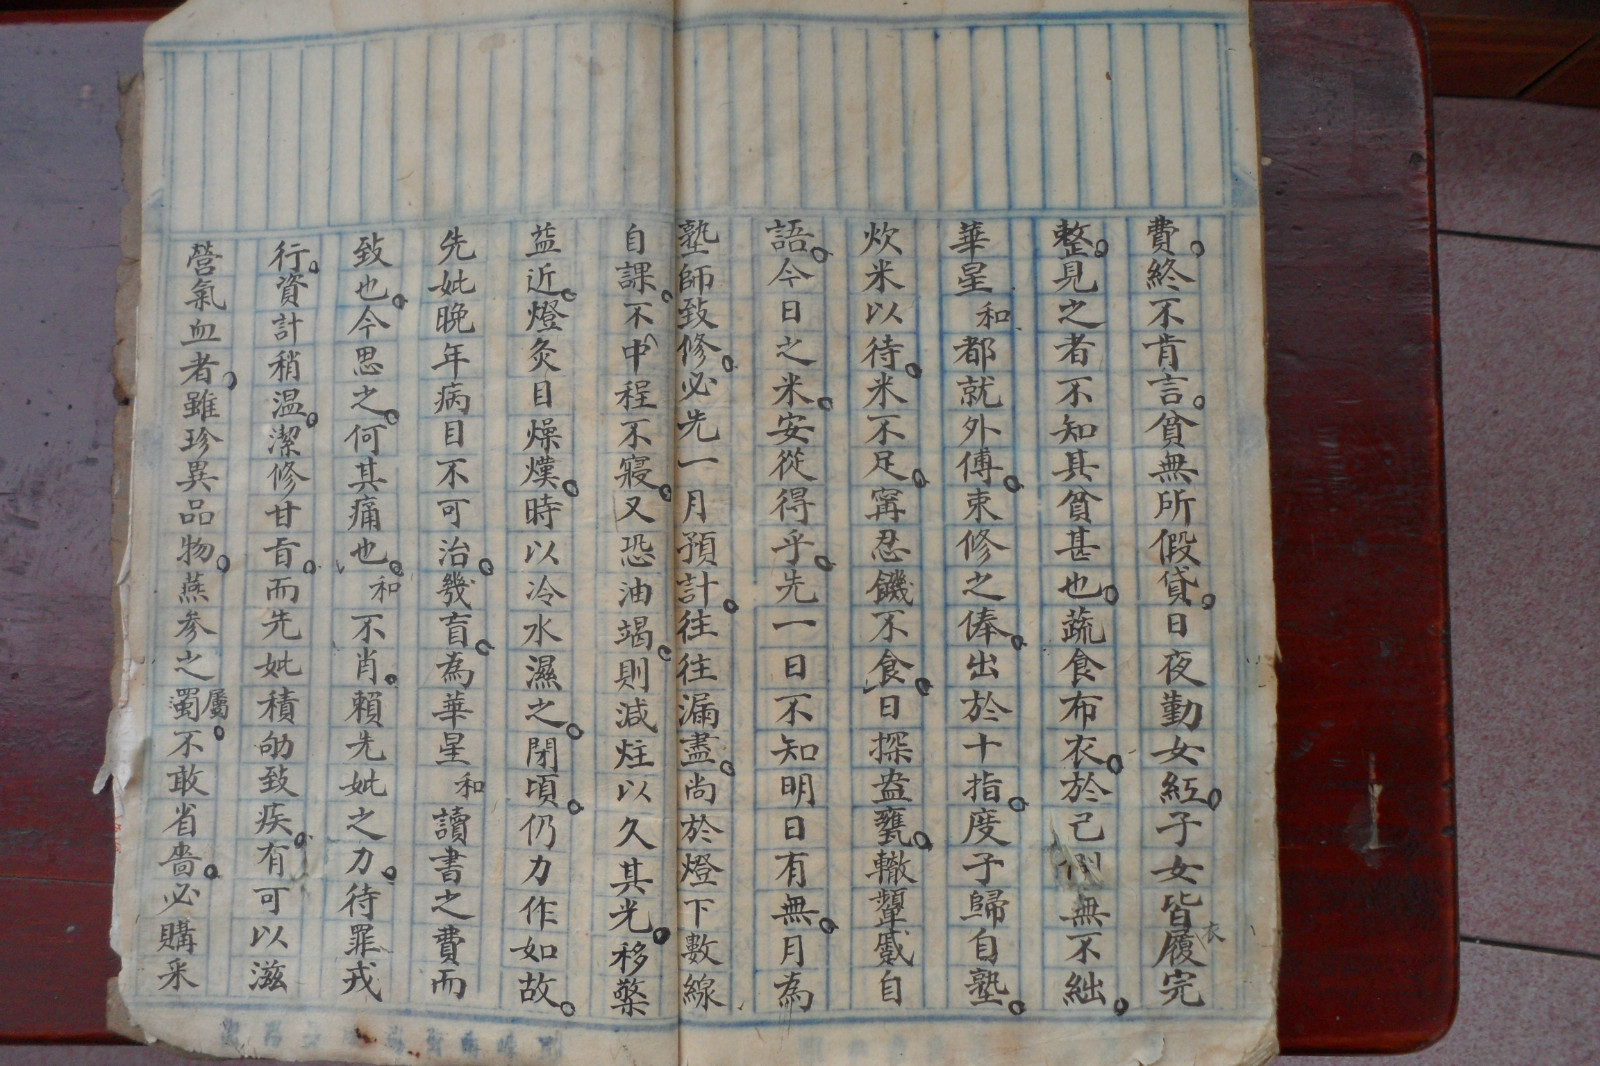 費。終不肯言。貧無所假貸。日夜勤女紅。子女皆衣履完
整。見之者不知其貧甚也。蔬食布衣。於己則無不絀。
華星和都就外傅。束修之俸。出於十指。度予歸自塾。
炊米以待。米不足。寗忍饑不食。日探盎甕。轍顰蹙自
語。今日之米。安從得乎。先一日不知明日有無。月為
塾師致修。必先一月預計。往往漏盡。尚於燈下數線
自課。不中程不寢。又恐油竭。則減炷以久其光。移檠
益近。燈灸目燥熯。時以冷水濕之。閉頃。仍力作如故。
先妣晚年病目不可治。幾盲。為華星和讀書之費而
致也。今思之。何其痛也。和不肖。賴先妣之力。待罪戎
行。資計稍溫。潔修甘旨。而先妣積劬致疾。有可以滋
營氣血者。雖珍異品物。燕參之屬。不敢省嗇。必購采